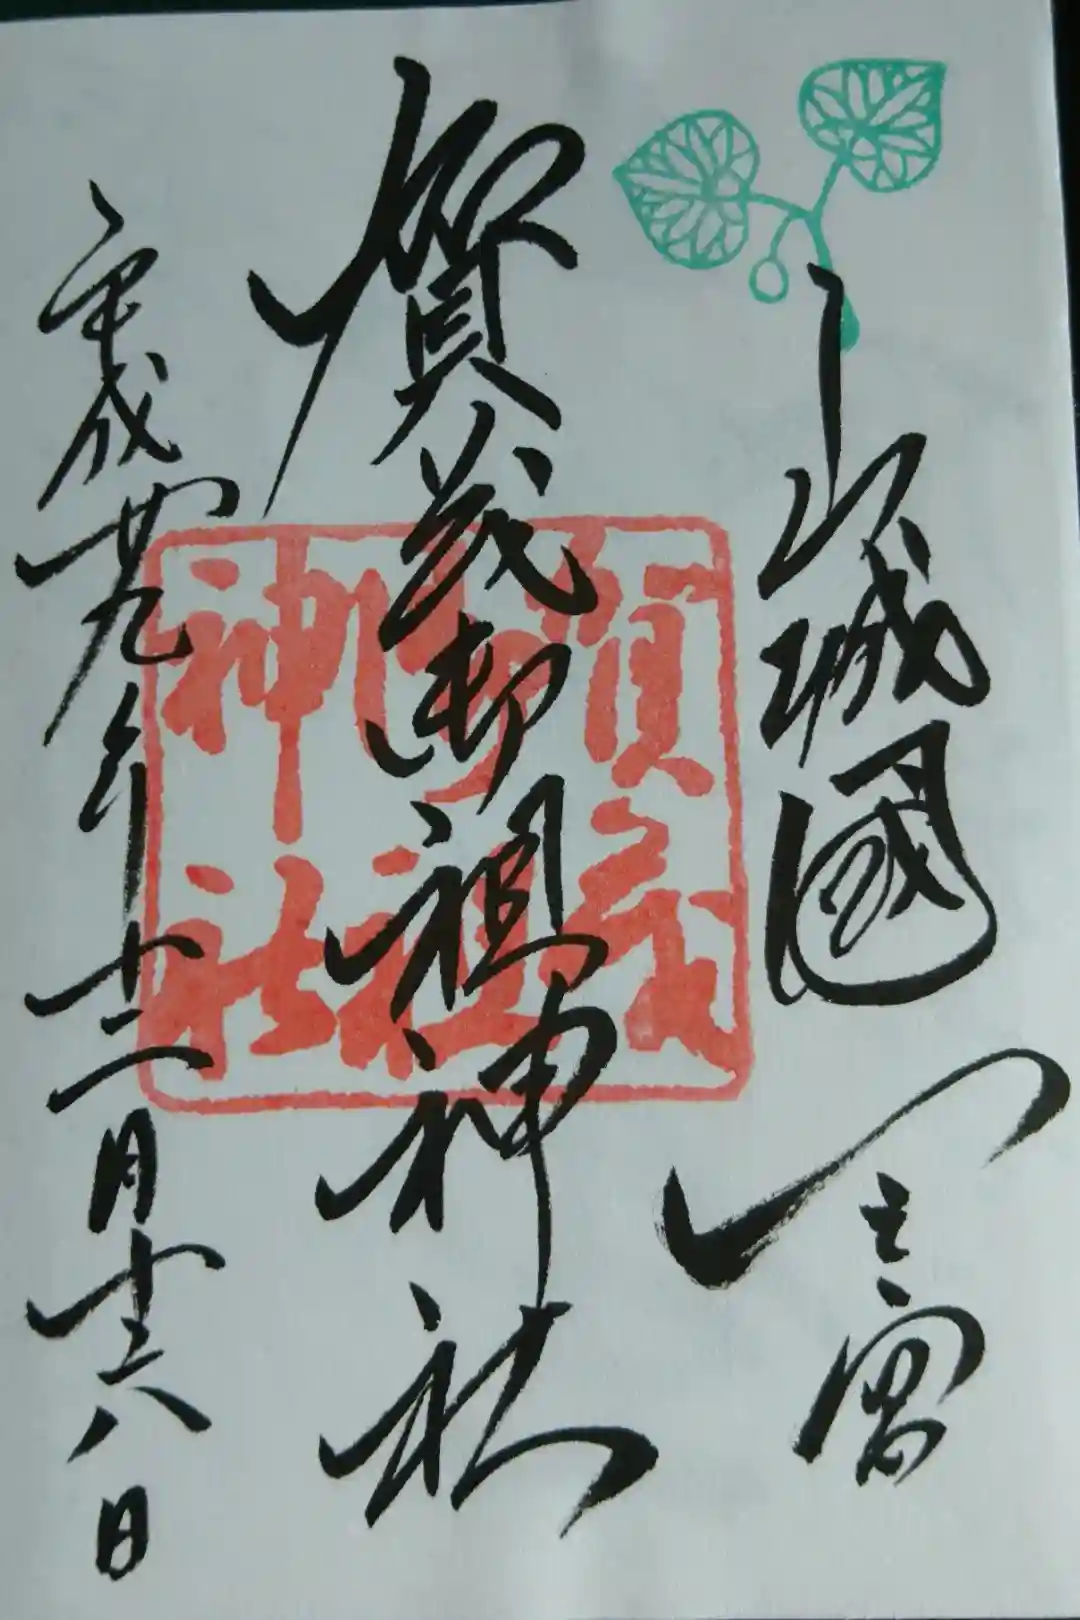 山城國一之宮
賀茂御祖神社
平成廿九年十二月十六日
賀茂
御祖
神社